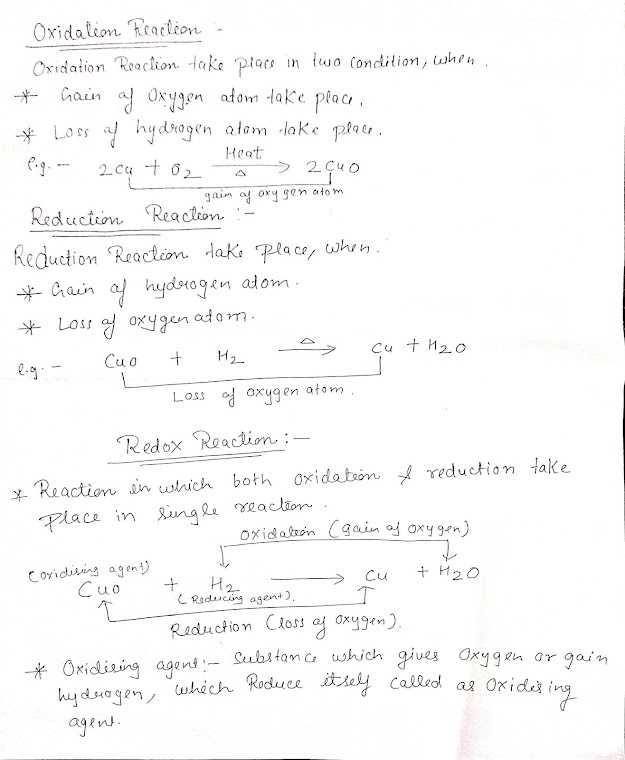 Oxidation Reaction -
Oxidation Reaction take place in two condition, when.
* Gain of Oxygen atom take place.
* Loss of hydrogen atom take place.
e.g. - 2Cu + O2 Heat → Δ 2CuO
gain of oxygen atom
Reduction Reaction :-
Reduction Reaction take place, when.
* Gain of hydrogen atom.
* Loss of oxygen atom.
e.g. - CuO + H2 Δ → Cu + H2O
Loss of oxygen atom.
Redox Reaction :-
* Reaction in which both oxidation & reduction take
place in single reaction.
Oxidation (gain of oxygen)
(oxidising agent)
CuO + H2 → Cu + H2O
(Reducing agent).
Reduction (loss of oxygen).
* Oxidising agent :- Substance which gives Oxygen or gain
hydrogen, which Reduce itself called as Oxidising
agent.